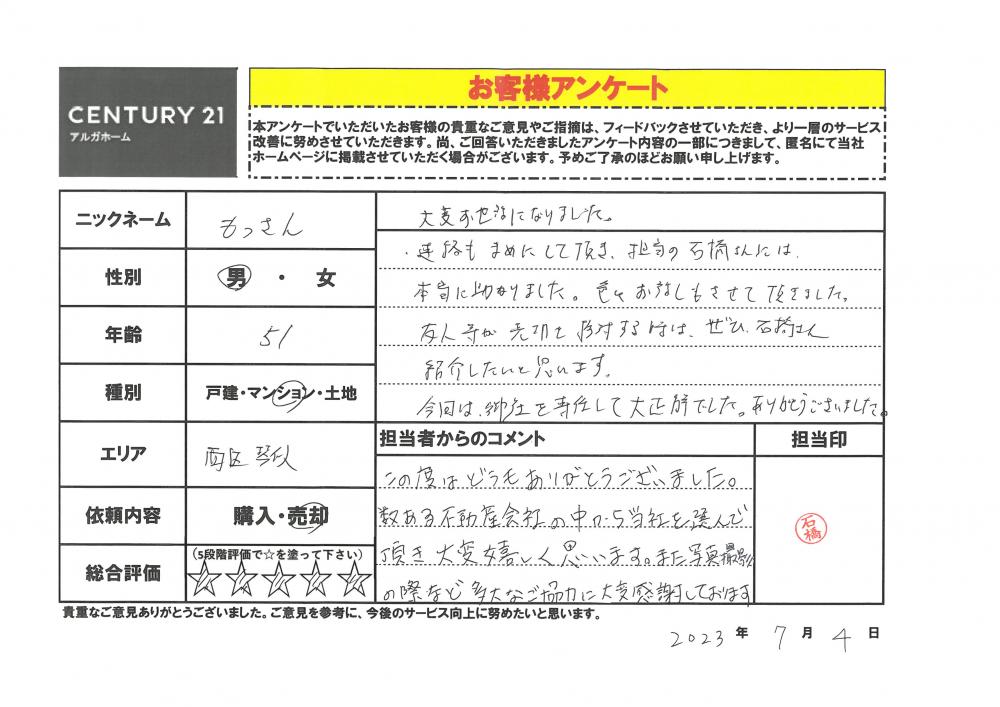 CENTURY 21
アルガホーム
お客様アンケート
本アンケートでいただいたお客様の貴重なご意見やご指摘は、フィードバックさせていただき、より一層のサービス
改善に努めさせていただきます。尚、ご回答いただきましたアンケート内容の一部につきまして、匿名にて当社
ホームページに掲載させていただく場合がございます。予めご了承のほどお願い申し上げます。
ニックネーム
もっさん
性別
男・女
年齢
51
種別
戸建・マンション・土地
エリア
西区
依頼内容
購入・売却
総合評価
(5段階評価で☆を塗って下さい)
☆☆☆☆☆
大変お世話になりました。
・連絡もまめにして頂き、担当の石橋さんには
本当に助かりました。色々お話しもさせて頂きました。
友人等が売却を検討する時は、ぜひ、石橋さん
紹介したいと思います。
今回は、御社を専任して大正解でした。ありがとうございました。
担当者からのコメント
この度はどうもありがとうございました。
数ある不動産会社の中から当社を選んで
頂き大変嬉しく思います。また写真撮影
の際など多大なご協力に大変感謝しております
担当印
石橋
貴重なご意見ありがとうございました。ご意見を参考に、今後のサービス向上に努めたいと思います。
2023年7月4日